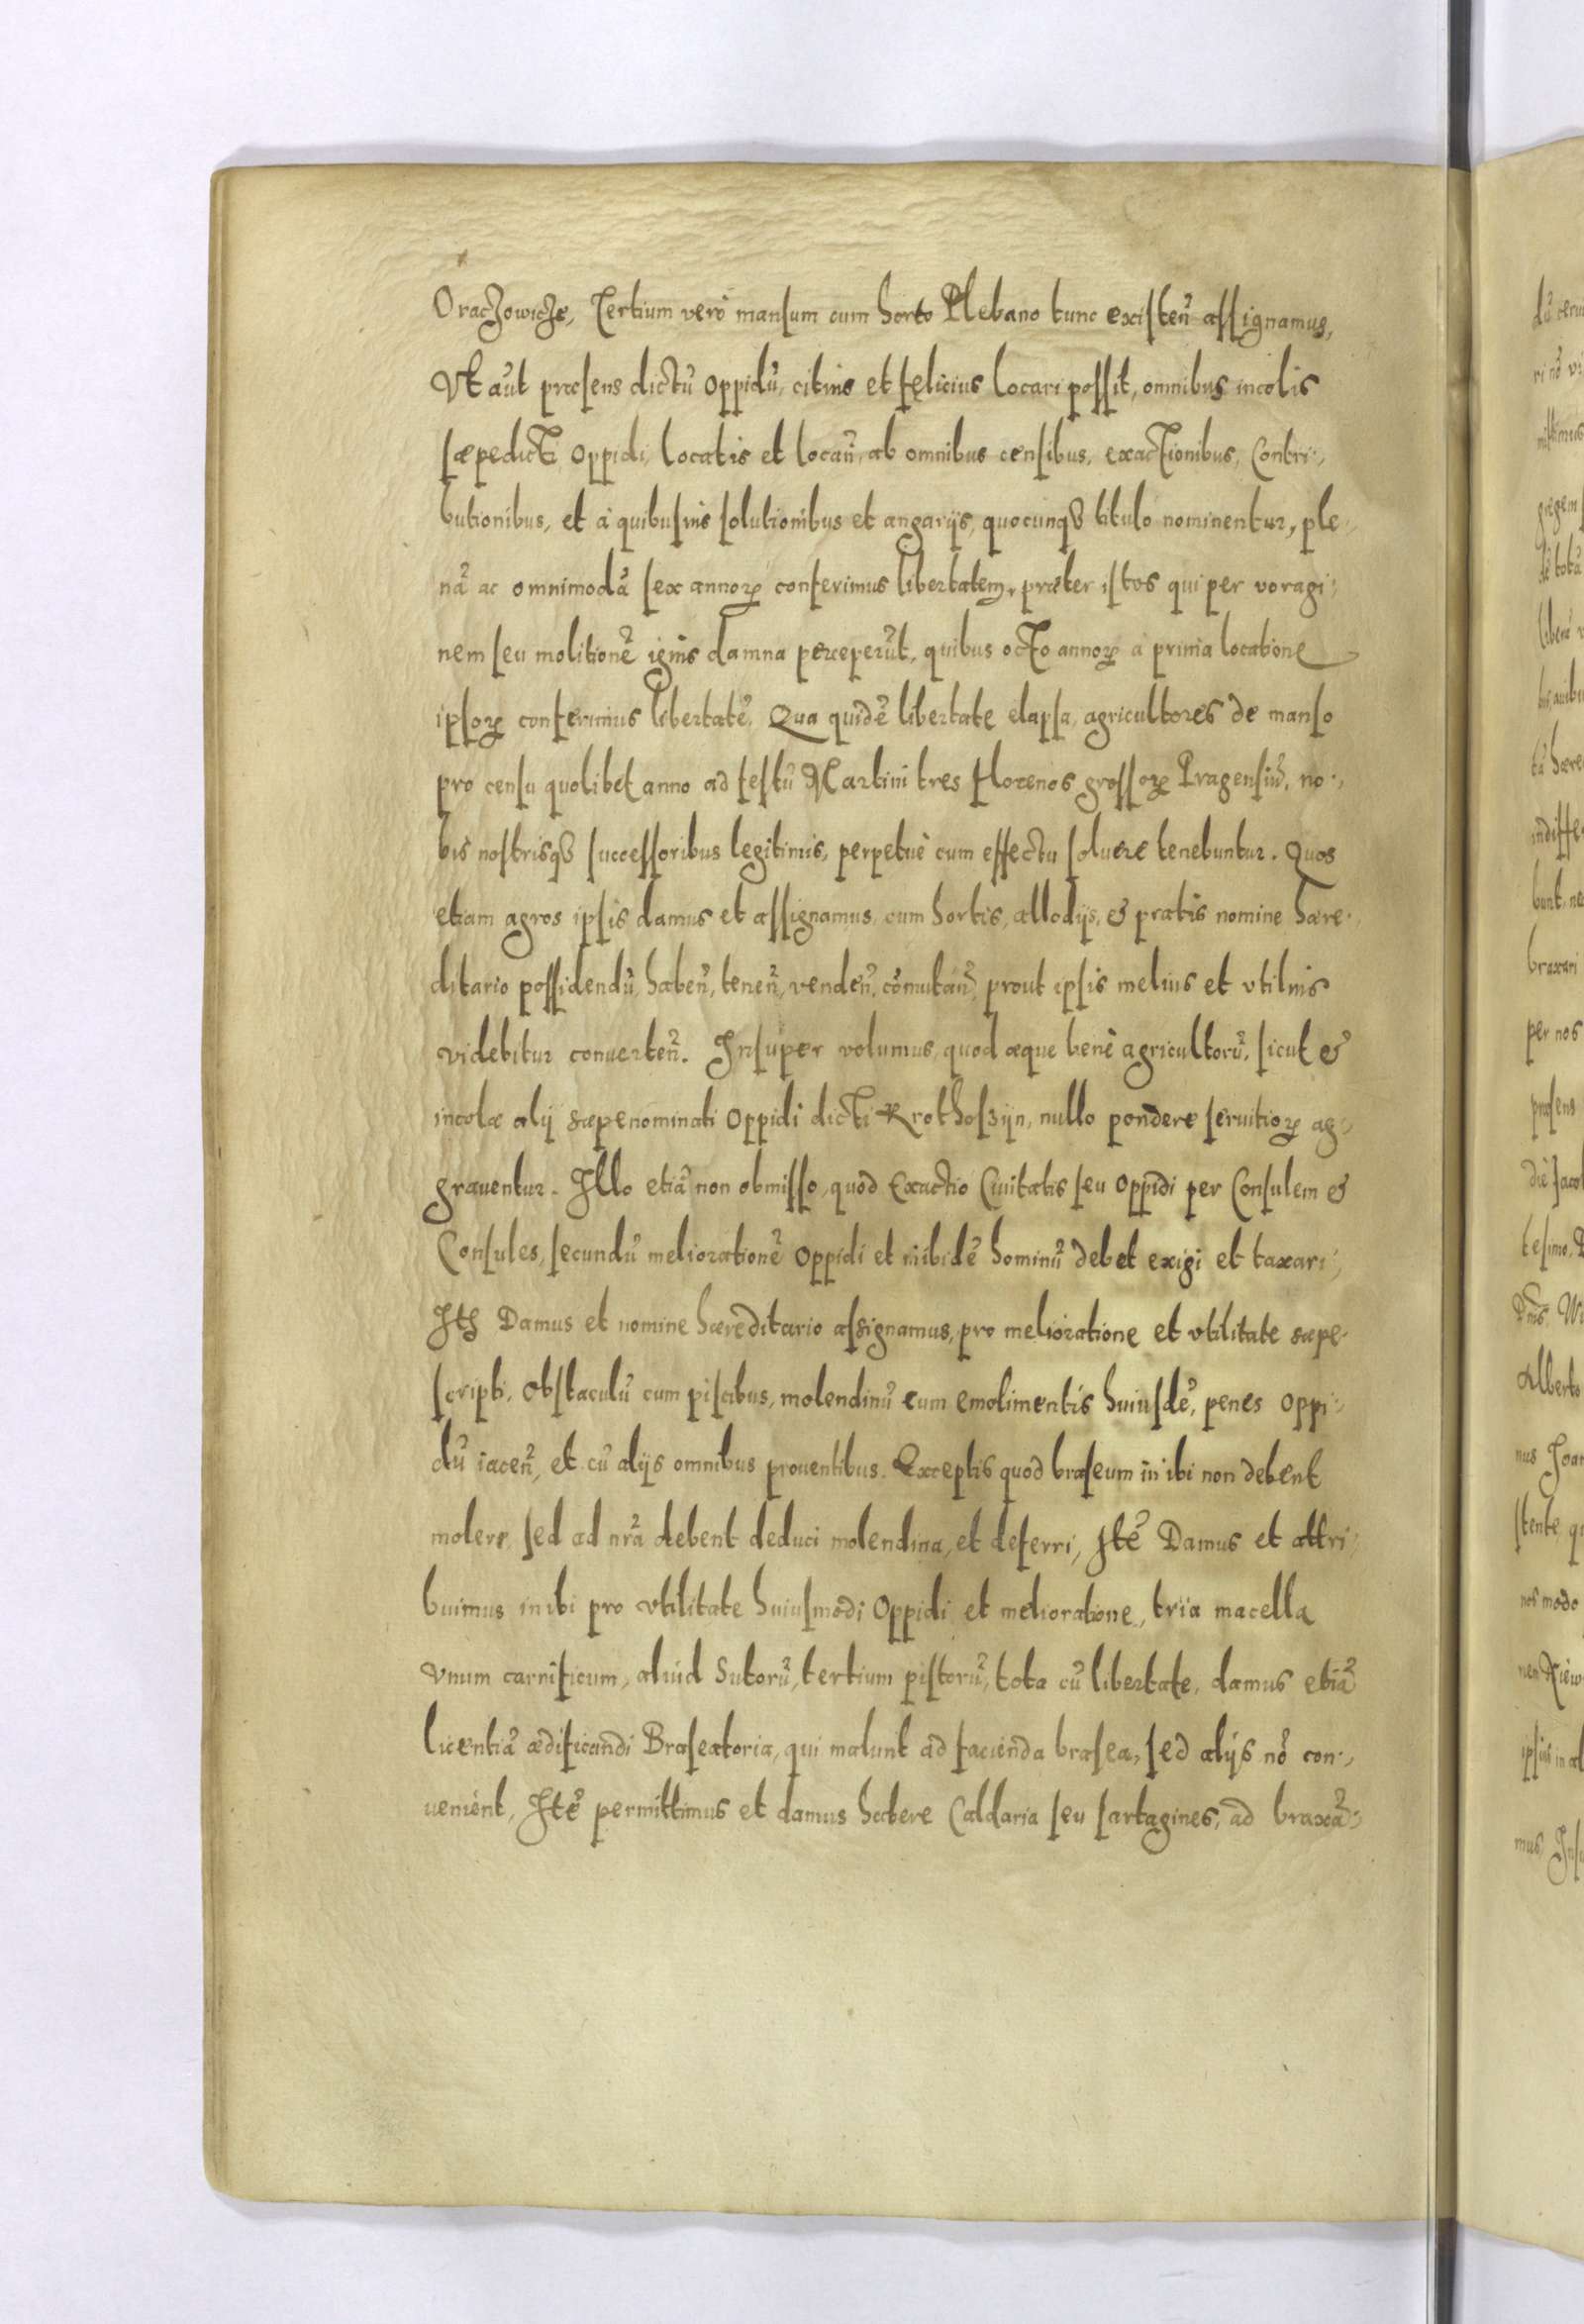 Oraczowicze, Tertium verò mansum cum horto Plebano tunc existeñ assignamus,
Vt aũt præsens dictũ Oppidũ, citius et felicius locari possit, omnibus incolis
sæpedicti Oppidi, locatis et locañ, ab omnibus censibus, exactionibus, Contri-
butionibus, et à quibusuis solutionibus et angarijs, quocunqꝫ titulo nominentur, ple-
nã ac omnimodã sex annoꝝ conferimus libertatem, præter istos qui per voragi-
nem seu molitionẽ ignis damna perceperũt, quibus octo annoꝝ à prima locatione
ipsoꝝ conferimus libertatẽ. Qua quidẽ libertate elapsa, agricultores de manso
pro censu quolibet anno ad festũ Martini tres florenos grossoꝝ Pragensiũ, no-
bis nostrisqꝫ successoribus legitimis, perpetuè cum effectu soluere tenebuntur. Quos
etiam agros ipsis damus et assignamus, cum hortis, allodijs, & pratis nomine hære-
ditario possidendũ, habeñ, teneñ, vendeñ, cõmutañ, prout ipsis melius et vtilius
videbitur conuerteñ. Insuper volumus, quod æque benè agricultorũ, sicut &
incolæ alij sæpenominati Oppidi dicti Krothoszijn, nullo pondere seruitioꝝ ag-
grauentur. Illo etiã non obmisso, quòd Exactio Ciuitatis seu Oppidi per Consulem &
Consules, secundũ meliorationẽ Oppidi et inibidẽ hominũ debet exigi et taxari,
Itẽ Damus et nomine hæreditario assignamus, pro melioratione et vtilitate sæpe-
scripti, Obstaculũ cum piscibus, molendinũ cum emolimentis huiusdẽ, penes Oppi-
dũ iaceñ, et cũ alijs omnibus prouentibus. Exceptis quòd braseum in ibi non debent
molere, sed ad nrã debent deduci molendina, et deferri, Itẽ Damus et attri-
buimus inibi pro vtilitate huiusmodi Oppidi et melioratione, tria macella
vnum carnificum, aliud Sutorũ, tertium pistorũ, tota cũ libertate, damus etiã
licentiã ædificandi Braseatoria, qui malunt ad facienda brasea, sed alijs nõ con-
uenient, Itẽ permittimus et damus habere Caldaria seu sartagines, ad braxã-